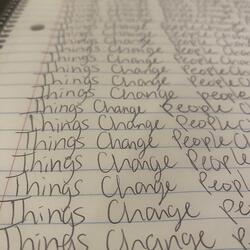 Things Change People
Things Change People
Things Change People
Things Change People C
Things Change People
Things Change people
Things Change people
Things Change People C
Things Change People C
Things Change People
Things Change Peop
Things Change Peo
Things Change Peo